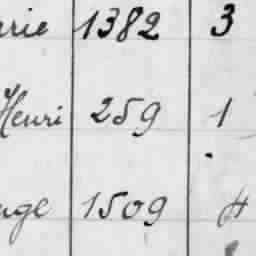 rie 1382 3
Henri 259 1
nge 1509 4